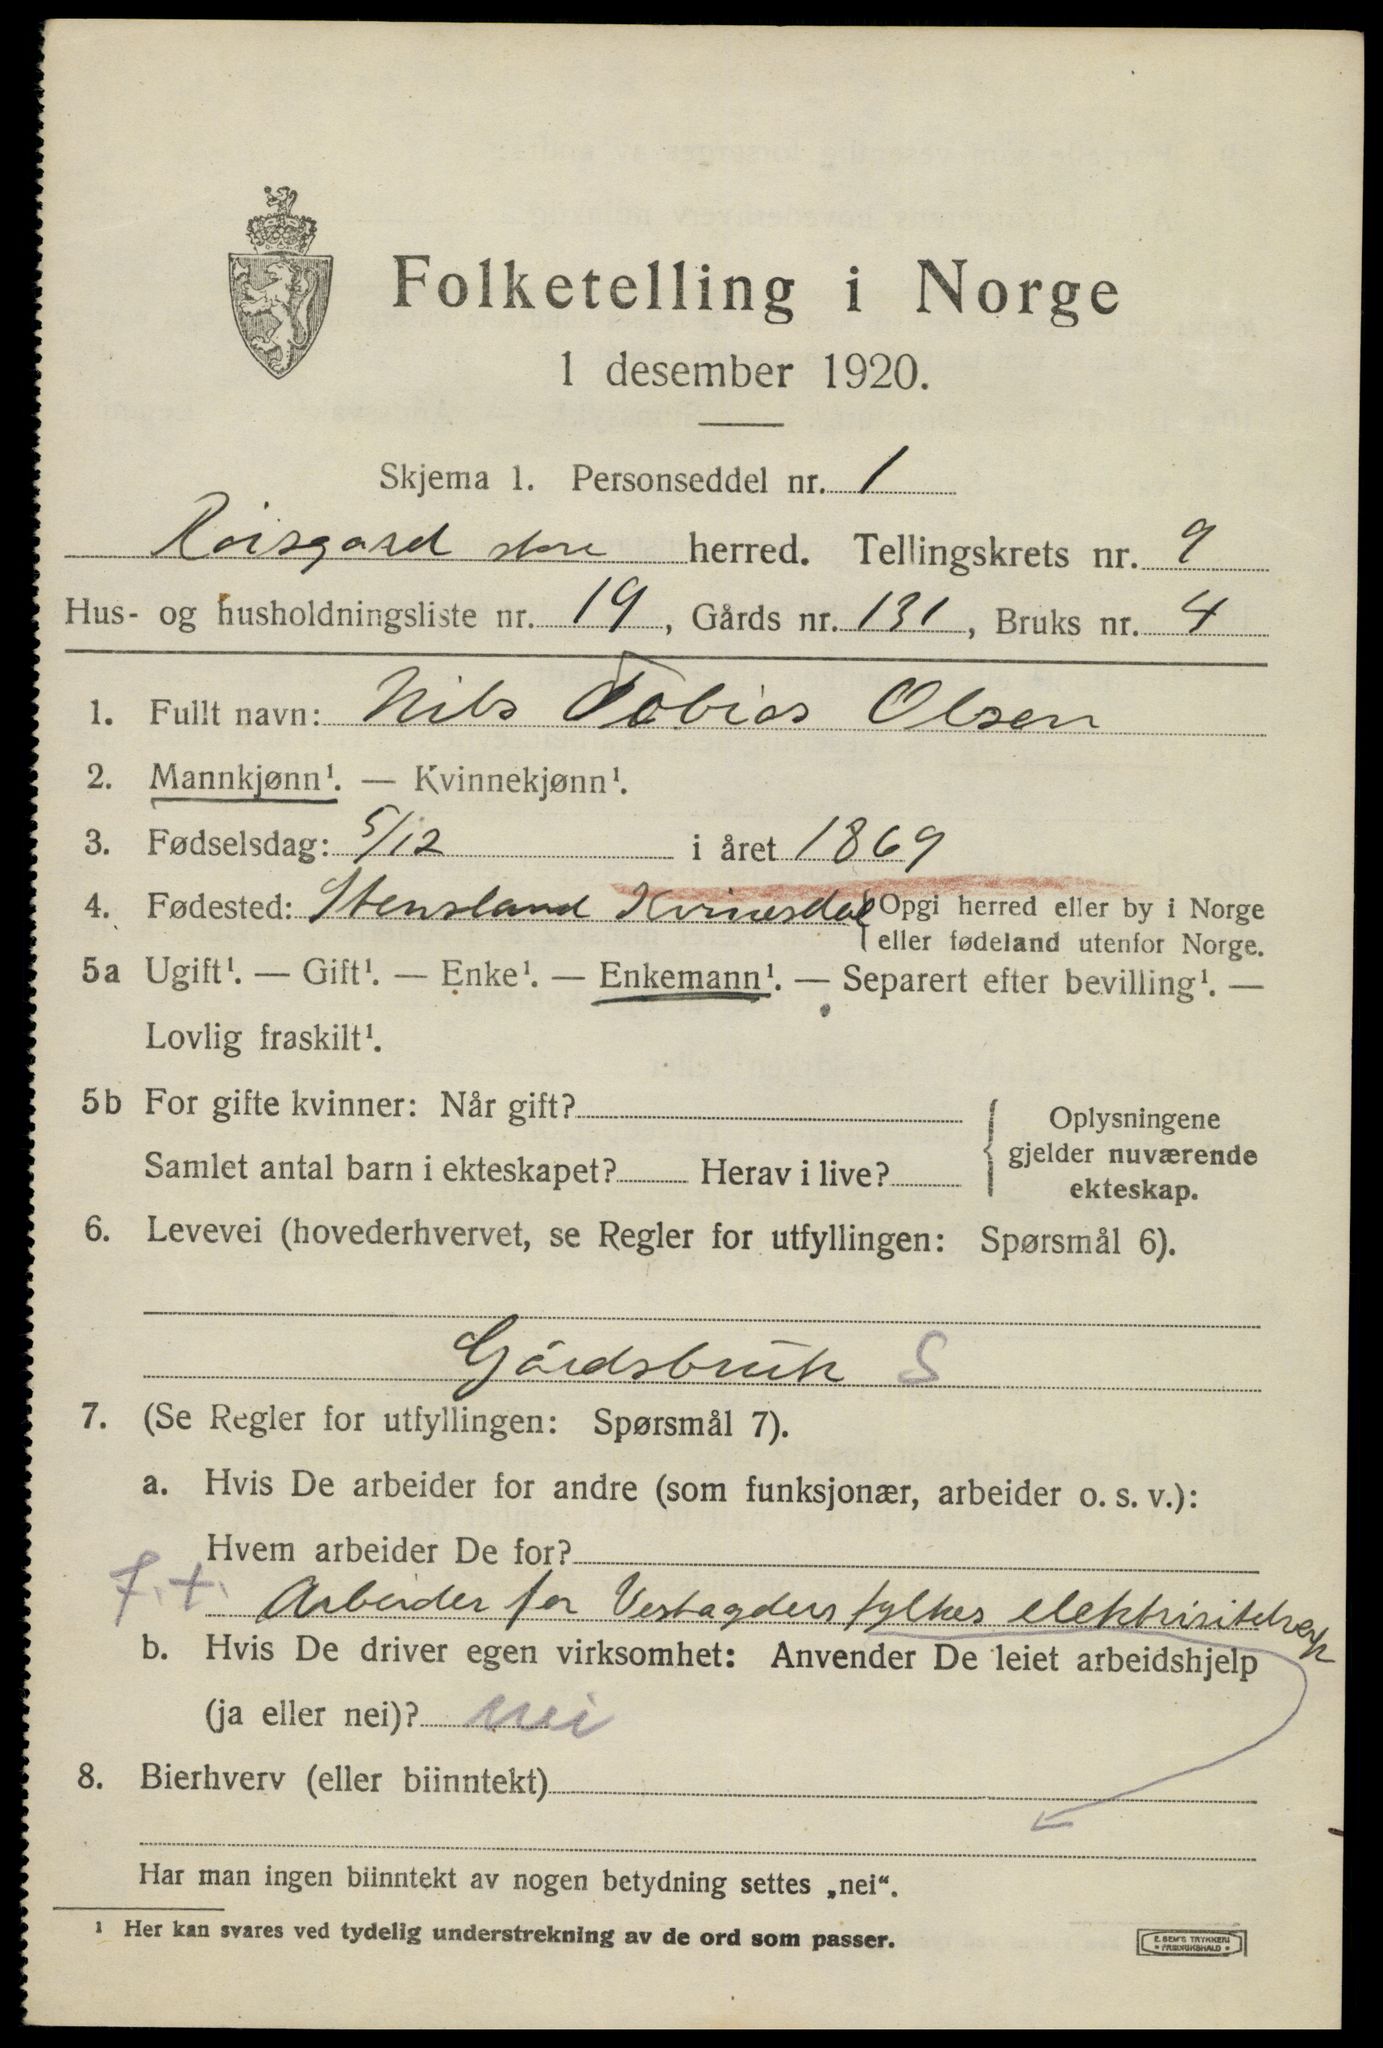 Folketelling i Norge
1 desember 1920.
Skjema 1. Personseddel nr. 1
Roisgard store herred. Tellingskrets nr. 9
Hus- og husholdningsliste nr. 19, Gårds nr. 131, Bruks nr. 4
1. Fullt navn: Nils Tobias Olsen
2. Mannkjønn¹. — Kvinnekjønn¹.
3. Fødselsdag: 5/12 i året 1869
4. Fødested: Stensland Kvinesdal { Opgi herred eller by i Norge
eller fødeland utenfor Norge.
5a Ugift¹. — Gift¹. — Enke¹. — Enkemann¹. — Separert efter bevilling¹. —
Lovlig fraskilt¹.
5b For gifte kvinner: Når gift?
Samlet antal barn i ekteskapet? Herav i live?
{ Oplysningene
gjelder nuværende
ekteskap.
6. Levevei (hovederhvervet, se Regler for utfyllingen: Spørsmål 6).
Gårdsbruk S
7. (Se Regler for utfyllingen: Spørsmål 7).
a. Hvis De arbeider for andre (som funksjonær, arbeider o. s. v.):
Hvem arbeider De for?
f. t. Arbeider for Vestagders fylkes elektrisitetsverk
b. Hvis De driver egen virksomhet: Anvender De leiet arbeidshjelp
(ja eller nei)? nei
8. Bierhverv (eller biinntekt)
Har man ingen biinntekt av nogen betydning settes „nei“.
¹ Her kan svares ved tydelig understrekning av de ord som passer.
E. SEM'S TRYKKERI
FREDRIKSHALD